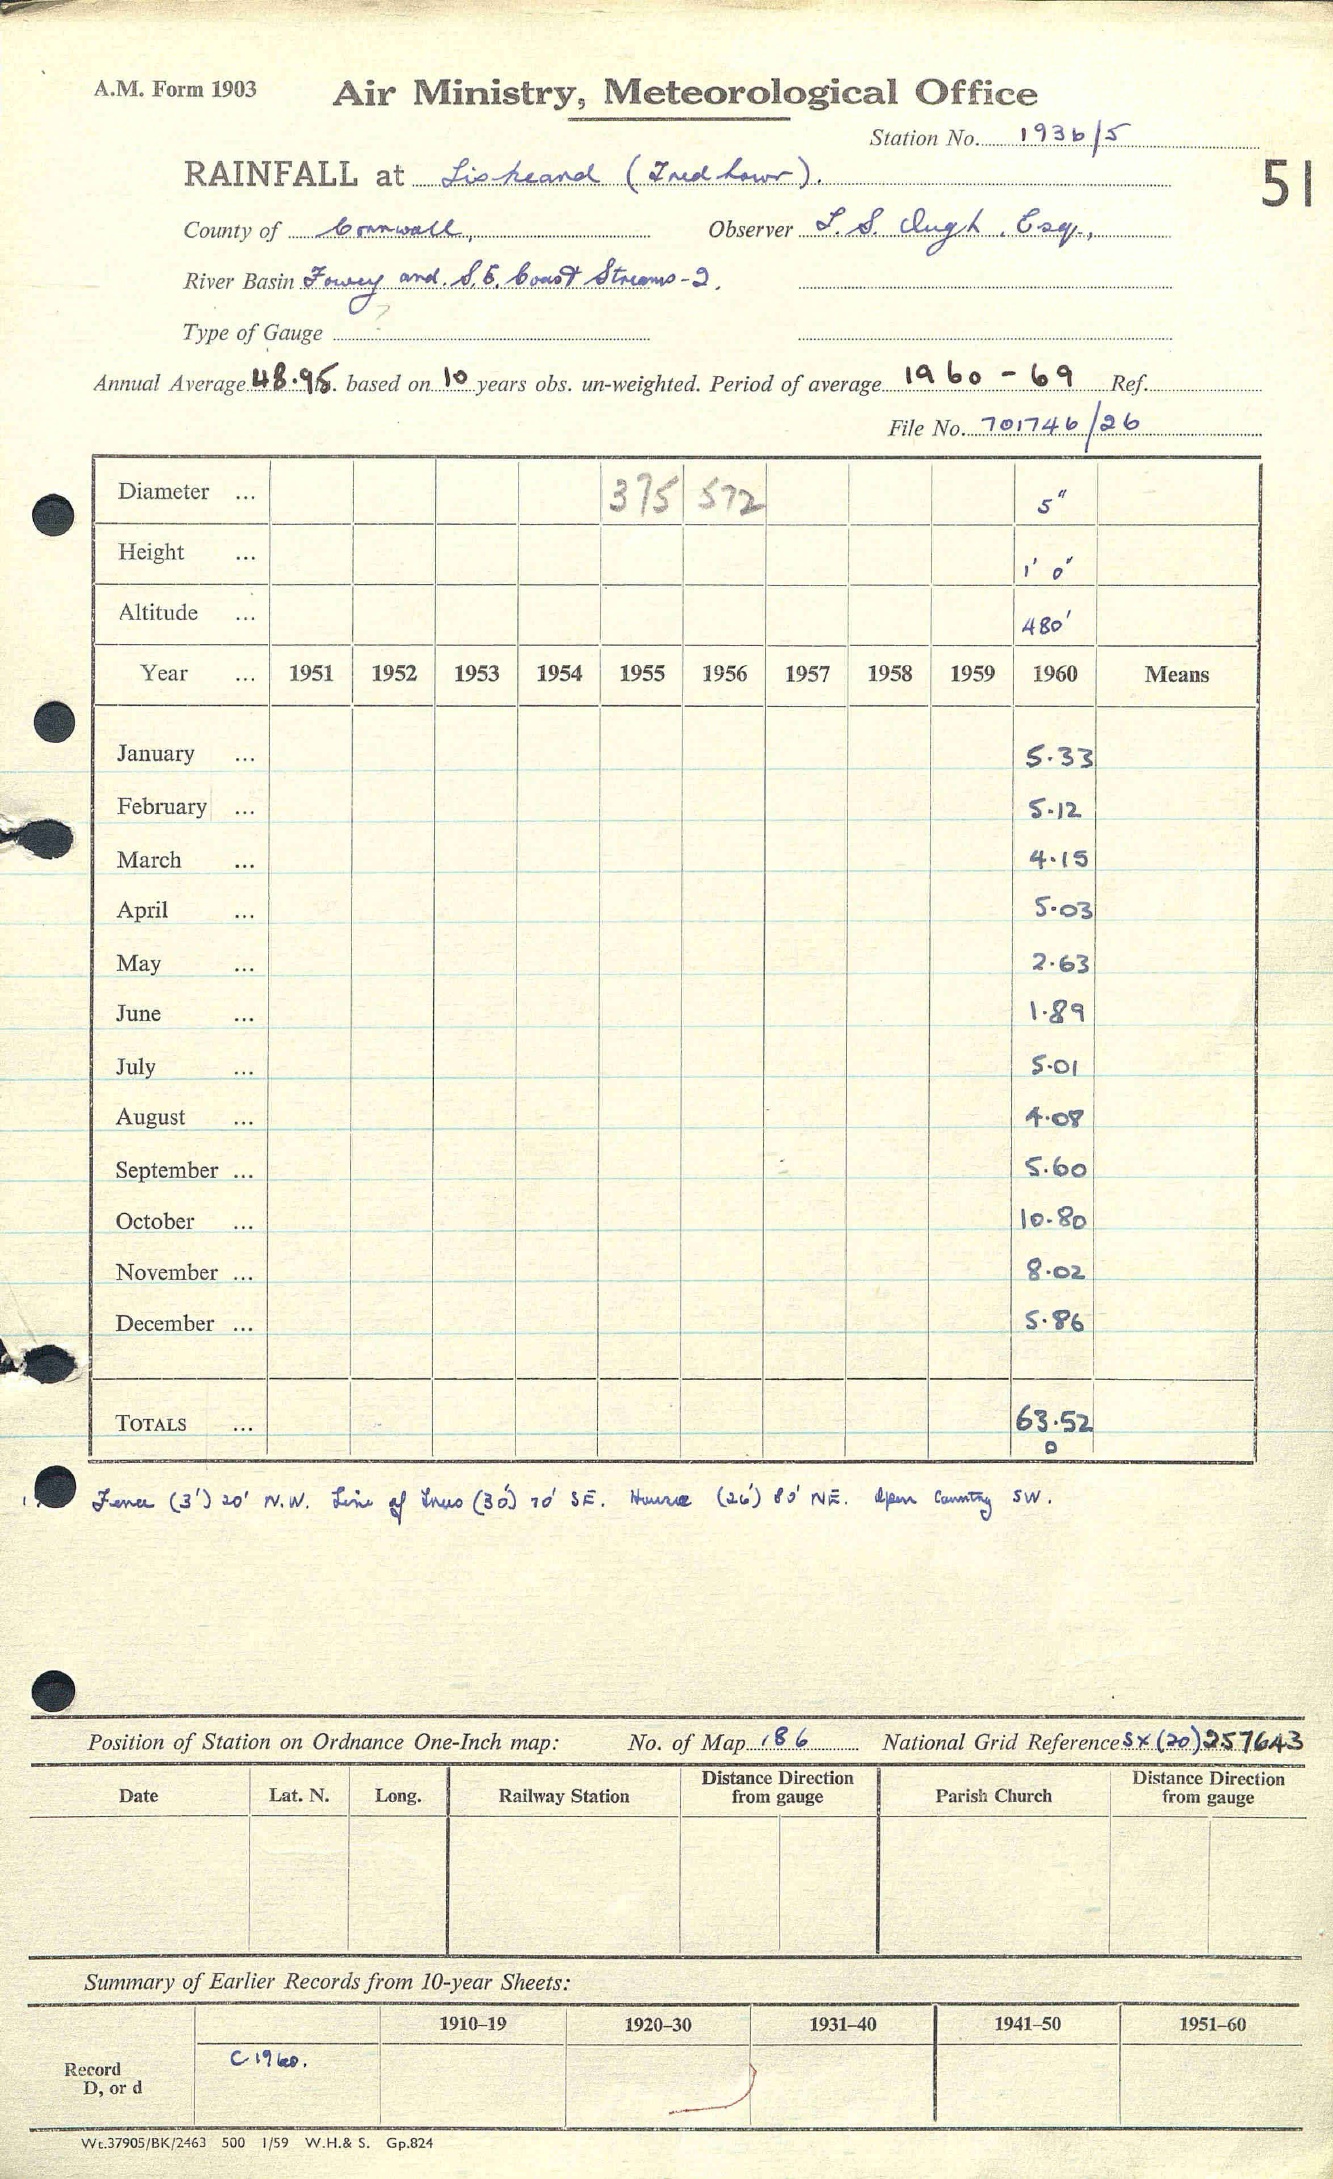 A.M. Form 1903 Air Ministry, Meteorological Office
Station No. 1936/5
51
RAINFALL at Liskeard ( ).
County of Cornwall, Observer S. Esq.,
River Basin Fowey and S.E. Coast Streams-2.
Type of Gauge ?
Annual Average 48.95. based on 10 years obs. un-weighted. Period of average 1960 - 69 Ref.
File No. 701746/26
Diameter ... 375 572 5"
Height ... 1' 0"
Altitude ... 480'
Year ... 1951 1952 1953 1954 1955 1956 1957 1958 1959 1960 Means
January ... 5.33
February ... 5.12
March ... 4.15
April ... 5.03
May ... 2.63
June ... 1.89
July ... 5.01
August ... 4.08
September ... 5.60
October ... 10.80
November ... 8.02
December ... 5.86
TOTALS ... 63.52
D
Fence (3') 20' N.W. Line of trees (30') 70' SE. House (26') 80' NE. Open Country SW.
Position of Station on Ordnance One-Inch map: No. of Map 186 National Grid Reference SX (20) 257643
Date Lat. N. Long. Railway Station Distance Direction from gauge Parish Church Distance Direction from gauge
Summary of Earlier Records from 10-year Sheets:
1910–19 1920–30 1931–40 1941–50 1951–60
Record D, or d C 1960.
Wt.37905/BK/2463 500 1/59 W.H.& S. Gp.824